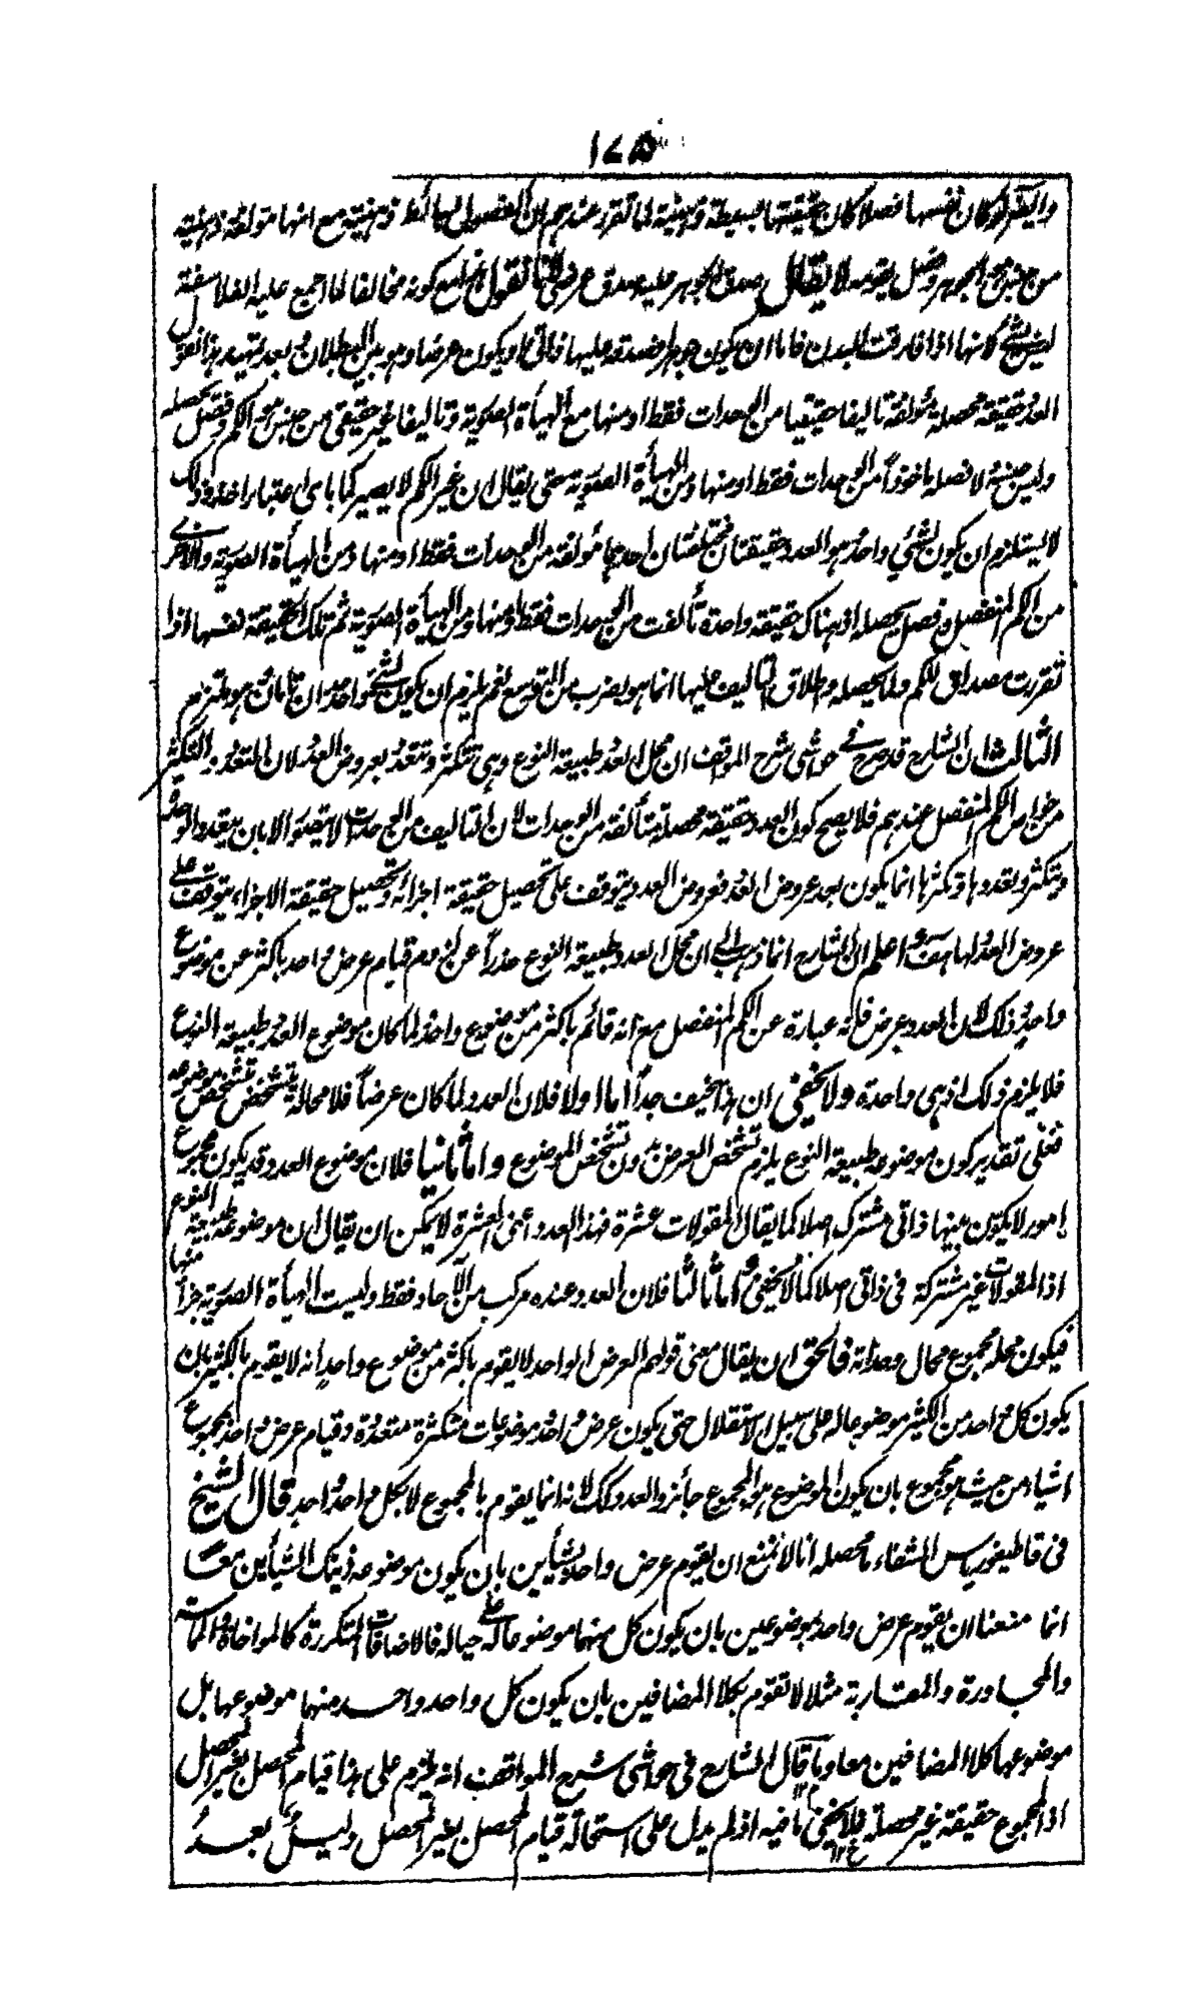 ١٧٥
وايضا لو كان نفسها فصلا كان حقيقتها بسيطة ذهنية لما تقرر عندهم ان الفصول بسائط ذهنية مع انها مؤلفة ذهنية
من جنس هو الجوهر وفصل يقومه لا يقال صدق الجوهر عليه صدق عرضي لانا نقول مع كونه مخالفا لما اجمع عليه الفلاسفة
ليس بشئ لانها اذا فارقت البدن فاما ان يكون جوهرا فصدقه عليها ذاتى او يكون عرضا وهو بين البطلان بعد تمهيد هذا نقول
العدد حقيقة محصلة مؤلفة تاليفا حقيقيا من الوحدات فقط او منها مع الهيأة الصورية وتاليفا غير حقيقى من جنس هو الكم وفصل يحصله
وليس جنسه لا فصله ماخوذا من الوحدات فقط او منها ومن الهيأة الصورية حتى يقال ان غير الكم لا يصير كما باى اعتبار اخذ وذلك
لا يستلزم ان يكون لشئ واحد هو العدد حقيقتان مختلفتان احدهما مؤلفة من الوحدات فقط او منها ومن الهيأة الصورية والاخرى
من الكم المنفصل وفصل يحصله اذ هناك حقيقة واحدة تألفت من الوحدات فقط او منها ومن الهيأة الصورية ثم تلك الحقيقة نفسها اذا
تقررت مصداق للكم ولما يحصله واطلاق التاليف عليها انما هو بضرب من التوسع نعم يلزم ان يكون لشئ واحد حدان تامان وهو ملتزم
الثالث ان الشارح قد صرح في حواشى شرح المواقف ان محل العدد طبيعة النوع وهى تتكثر وتتعدد بعروض العدد لان التعدد والتكثر
من خواص الكم المنفصل عندهم فلا يصح كون العدد حقيقة محصلة متألفة من الوحدات لان التاليف من الوحدات لا يتصور الا بان يتعدد الوحدة
وتتكثر وتعددها وتكثرها انما يكون بعد عروض العدد فعروض العدد يتوقف على تحصيل حقيقة اجزائه وتحصيل حقيقة الاجزاء يتوقف على
عروض العدد لها هف واعلم ان الشارح انما ذهب الى ان محل العدد طبيعة النوع حذرا عن لزوم قيام عرض واحد باكثر عن موضوع
واحد وذلك لان العدد عرض فانه عبارة عن الكم المنفصل مع انه قائم باكثر من موضوع واحد لما كان موضوع العدد طبيعة النوع
فلا يلزم ذلك اذ هى واحدة ولا يخفى ان هذا سخيف جدا اما اولا فلان العدد لما كان عرضا فلا محالة يتشخص بتشخص موضوعه
فعلى تقدير كون موضوعه طبيعة النوع يلزم تشخص العرض بدون تشخص الموضوع واما ثانيا فلان موضوع العدد قد يكون مجموع
امور لا يكون بينها ذاتى مشترك اصلا كما يقال المقولات عشرة فهذا العدد اعنى العشرة لا يمكن ان يقال ان موضوعه طبيعة النوع
اذ المقولات غير مشتركة فى ذاتى اصلا كما لا يخفى واما ثالثا فلان العدد عنده مركب من الآحاد فقط وليست الهيأة الصورية جزأ منها
فيكون محله مجموع محال وحداته فالحق ان يقال معنى قولهم العرض الواحد لا يقوم باكثر من موضوع واحد انه لا يقوم بالكثير بان
يكون كل واحد من الكثير موضوعا له على سبيل الاستقلال حتى يكون عرض واحد موضوعات متكثرة متعددة وقيام عرض واحد بمجموع
اشياء من حيث هو مجموع بان يكون الموضوع هو المجموع جائز والعدد كذلك لانه انما يقوم بالمجموع لا بكل واحد واحد قال الشيخ
فى قاطيغورياس الشفاء ما محصله انا لا نمنع ان يقوم عرض واحد بشيئين بان يكون موضوعه ذينك الشيأين معا
انما منعنا ان يقوم عرض واحد بموضوعين بان يكون كل منهما موضوعا له على حياله فالاضافات المتكررة كالمواخاة والمماسة
والمجاورة والمقاربة مثلا لا تقوم بكلا المضافين بان يكون كل واحد واحد منهما موضوعها بل
موضوعها كلا المضافين معا وما قال الشارح فى حواشى شرح المواقف انه يلزم على هذا قيام المحصل بغير المحصل
اذ المجموع حقيقة غير محصلة فلا يخفى ما فيه اذ لم يدل على استحالة قيام المحصل بغير المحصل دليل بعد